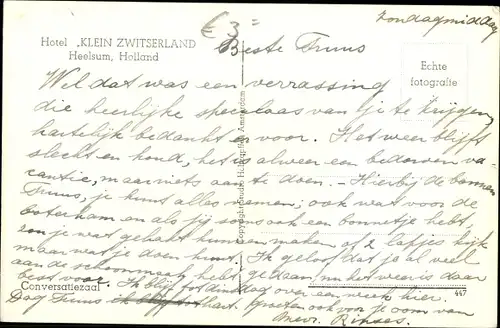 € 3=
Zondagmiddag
Hotel „KLEIN ZWITSERLAND
Heelsum, Holland
Beste Truus
Echte
fotografie
Wel dat was een verrassing
die heerlijke speculaas van je te krijgen
hartelijk bedankt er voor. Het weer blijft
slecht en koud, het is alweer een bedorven va
cantie, maar niets aan te doen. - Hierbij de bonnen
Truus, je kunt alles nemen; ook wat voor de
boterham en als jij soms ook een bonnetje hebt,
zou je wat gehakt kunnen maken of 2 lapjes kijk
maar wat je doen kunt. Ik geloof dat je al veel
aan de schoonmaak hebt gedaan nu het weer is daar
best voor. Ik blijf tot dinsdag over een week hier.
Dag Truus groeten ook voor je oom van
Mevr. Rinses.
Conversatiezaal
447